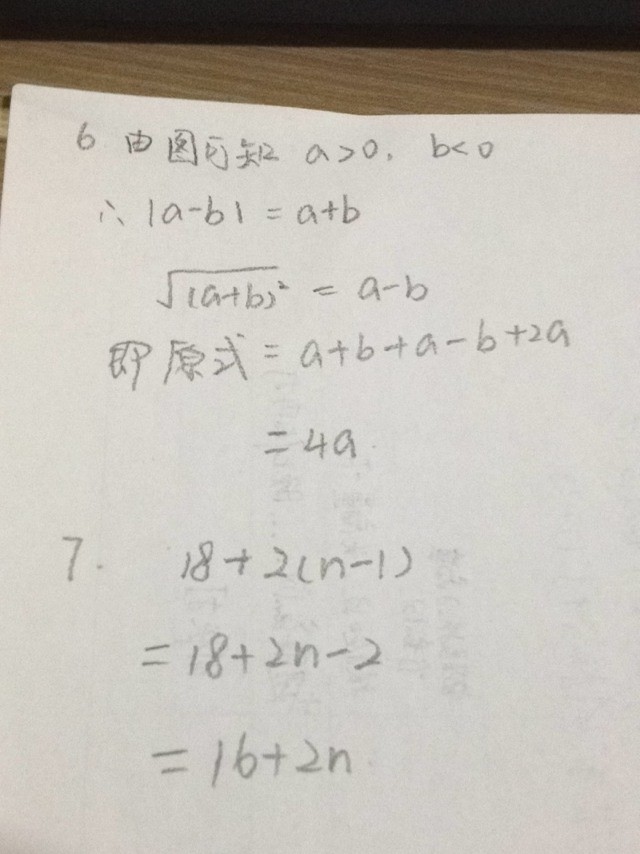 6 由图可知 a>0, b<0
∴ |a-b| = a+b
√(a+b)² = a-b
即原式 = a+b+a-b+2a
= 4a
7. 18+2(n-1)
= 18+2n-2
= 16+2n